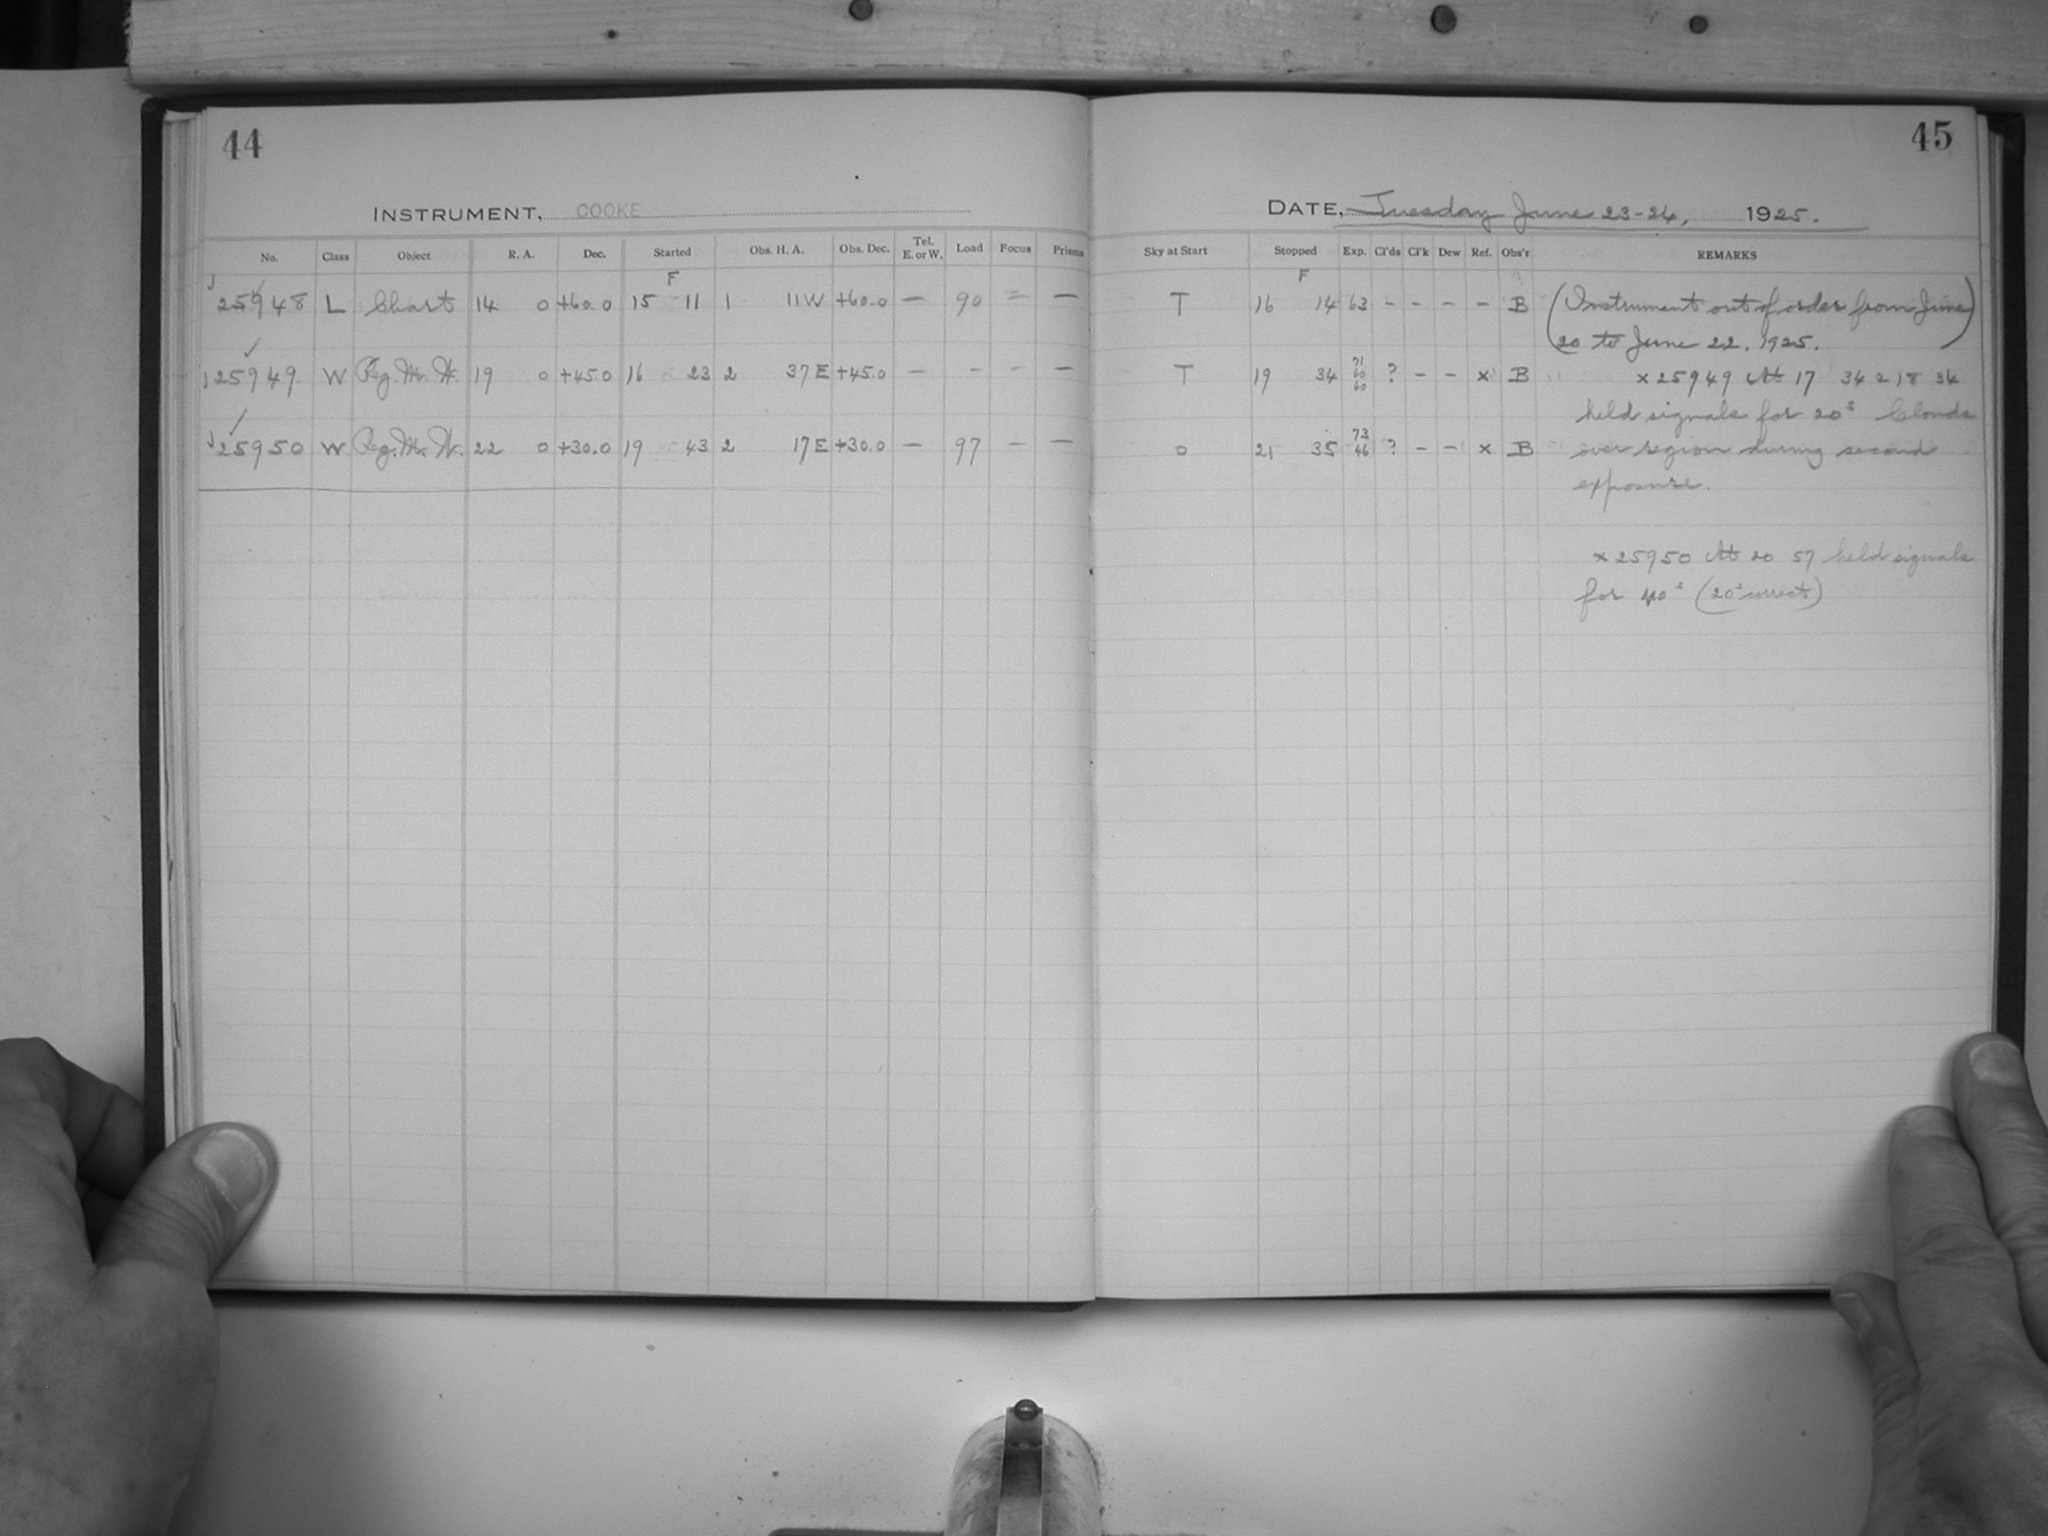 44
INSTRUMENT, COOKE
No. Class Object R. A. Dec. Started Obs. H. A. Obs. Dec. Tel. E. or W. Load Focus Prisms
F
25948 L Chart 14 0 +60.0 15 11 1 11 W +60.0 — 90 = —
25949 W Reg. M. W. 19 0 +45.0 16 23 2 37 E +45.0 — - - —
25950 W Reg. M. W. 22 0 +30.0 19 43 2 17 E +30.0 — 97 — —
45
DATE, Tuesday June 23-24, 1925.
Sky at Start Stopped Exp. Cl'ds Cl'k Dew Ref. Obs'r REMARKS
F
T 16 14 63 - - - - B (Instrument out of order from June
20 to June 22. 1925.)
T 19 34 71 60 60 ? - - x B x 25949 At 17 34 & 18 34
held signals for 20s Clouds
0 21 35 73 46 ? - - x B over region during second
exposure.
x 25950 At 20 57 held signals
for 40s (20s correct)